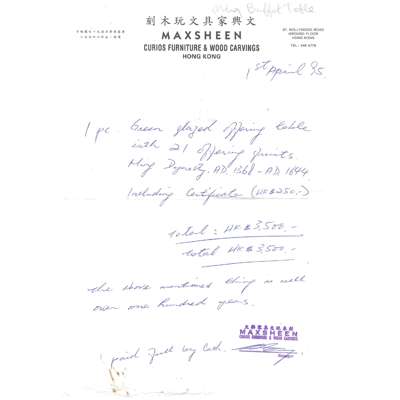 Ming Buffet Table
刻木玩文具家興文
MAXSHEEN
CURIOS FURNITURE & WOOD CARVINGS
HONG KONG
HOLLYWOOD ROAD
GROUND FLOOR
HONG KONG
TEL:
1st April 95.
1 pc. Green glazed offering table
with 21 offering fruits.
Ming Dynasty. AD 1368 - AD 1644.
Including Certificate (HK$250,-)
total = HK$3,500,-
total HK$3,500,-
the above mentioned thing is well
over one hundred years.
MAXSHEEN
CURIOS FURNITURE & WOOD CARVINGS
paid full by Cash.